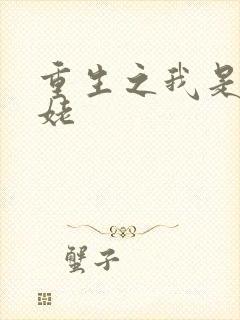 重生之我是
姥
蟹子